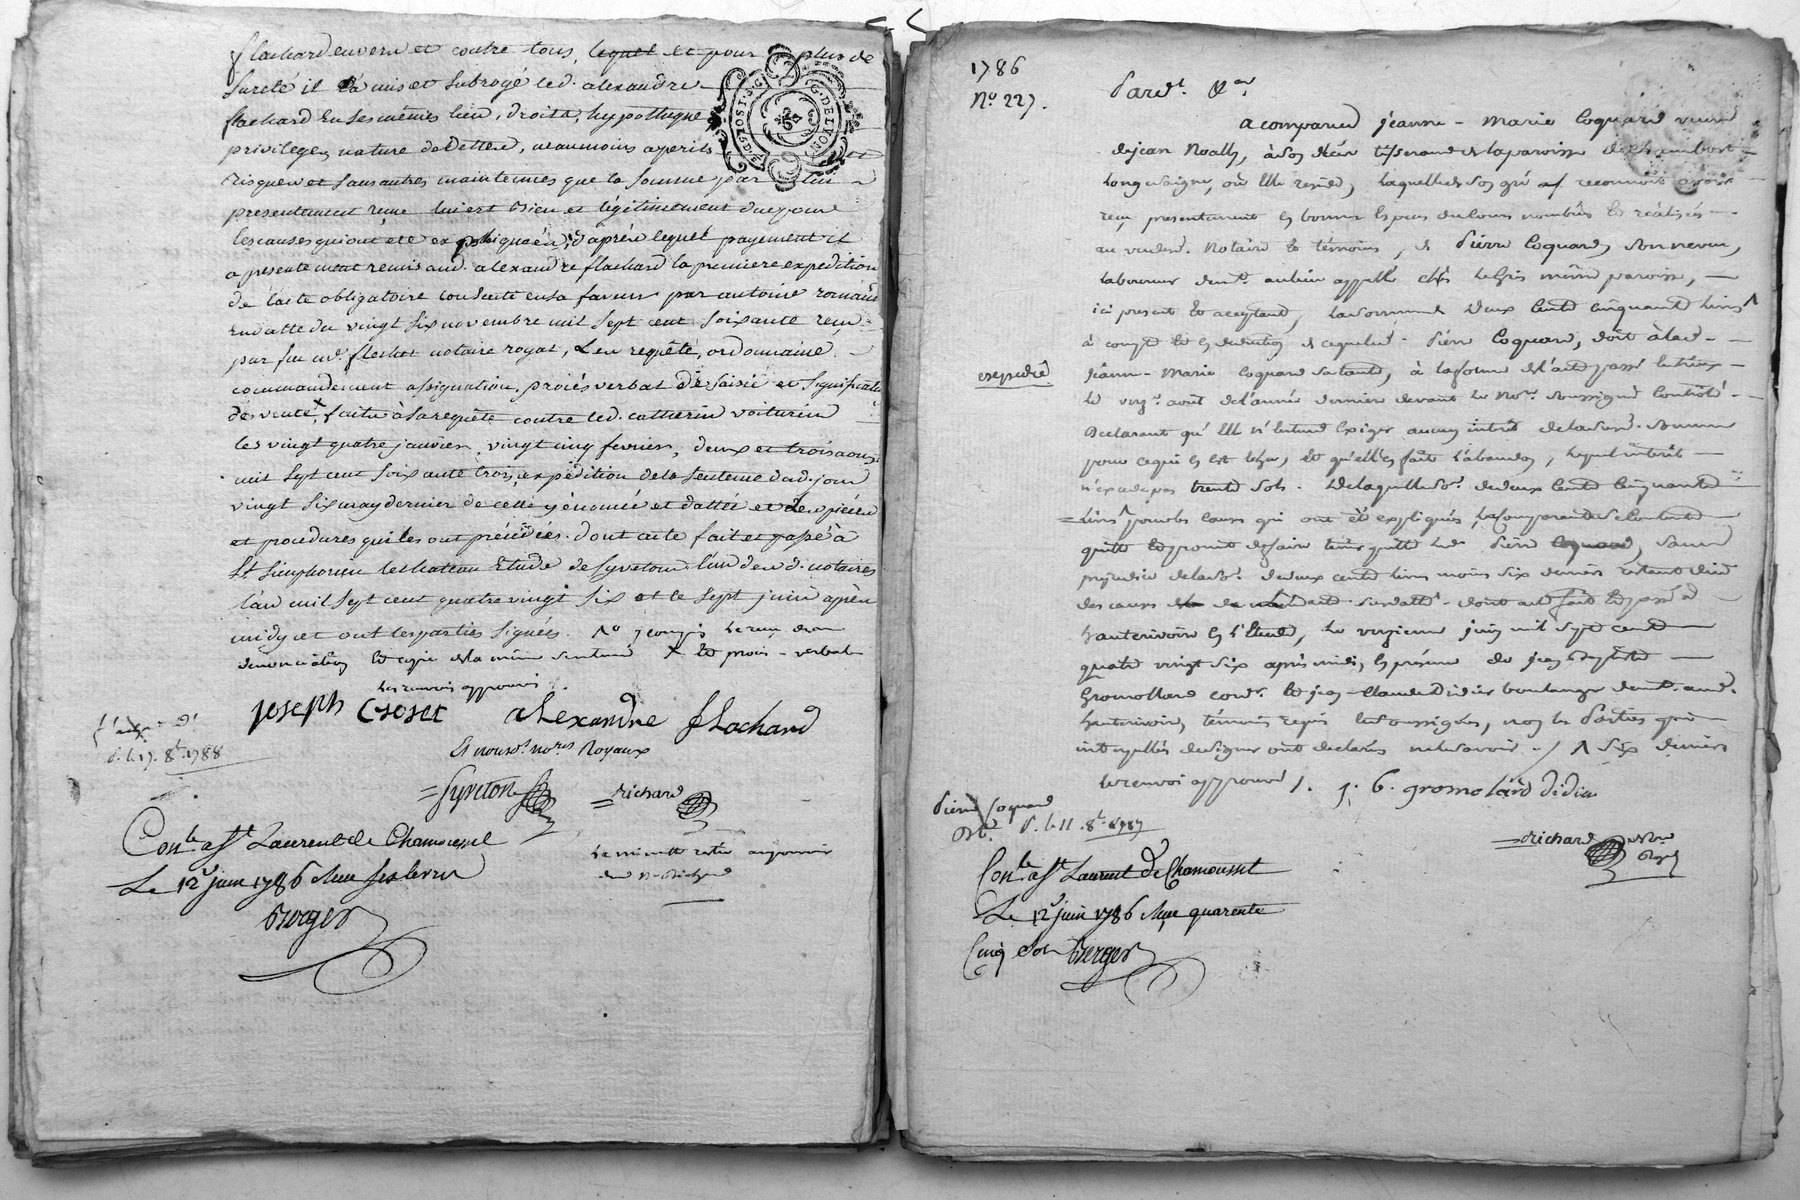 flachard envers et contre tous, lequel et pour plus de
sureté il l'a mis et subrogé led. alexandre
flachard en ses mêmes lieu, droits, hypotheque
privileges nature de dettes, neanmoins a perils et
risques et sans autres maintenues que la somme par lui
presentement reçue lui est bien et légitimement due pour
les causes qui ont été expliquées, d'après lequel payement il
a presentement remis aud. alexandre flachard la premiere expedition
de l'acte obligatoire consentie en sa faveur par antoine romain
en datte du vingt six novembre mil sept cent soixante reçu
par feu me. flechet notaire royal, Les requête, ordonnance
commandement assignation, procés verbal de saisie et signification
de vente, faits à sa requête contre led. catherin voiturin
les vingt quatre janvier, vingt cinq fevrier, deux et trois aoust
mil sept cent soixante trois, expedition de la sentence dud. jour
vingt six may dernier de celle y énoncée et dattée et des pièces
et procedures qui les ont précédées. dont acte fait et passé à
St. Simphorien le chateau Etude de Syveton l'un des d. notaires
l'an mil sept cent quatre vingt six et le sept juin après
midy et ont les parties signées.
et copie de la même sentence X et procès-verbal
les renvois approuvés.
joseph Crozet alexandre flachard
Et nous d. nores. Royaux
Syveton richard
P. le 19. 8e. 1788
Conle. a St. Laurent de Chamousset
Le 12 juin 1786 Reçu
Berger
La minutte restée au pouvoir
de Me Richard
G. DE LYON
1786
No. 227.
Pardt. &ca.
a comparu jeanne-Marie Coquard veuve
de jean Noally, à son décès tisserand de la paroisse de Chambost
Longessaigne, où Elle reside, laquelle de son gré a reconnu avoir
reçu presentement en bonnes especes du cours nombrées et réalisées
au vu desd. Notaire et témoins, de Pierre Coquard, son neveu,
laboureur demt. au lieu appellé chés même paroisse,
ici present et acceptant, la somme Deux Cents Cinquante livres
à compte et en deduction de ce que led. Pierre Coquard, doit à lad.
expedié
jeanne-Marie Coquard sa tante, à la forme de l'acte passé entr'eux
le août de l'année derniere devant le Nore. soussigné Controlé
Declarant qu'Elle n'entend Exiger aucun intérêt de lad. somme
pour ce qui en est échu, et qu'elle en fait l'abandon, lequel interêt
n'excede pas trente sols. De laquelle so. de deux Cents Cinquante
livres pour les causes qui ont été expliquées, la comparante se Contente
quitte et promet de faire tenir quitte led. Pierre Coquard, sans
prejudice de la so. de deux cents livres moins six deniers restant due
des causes dud. acte susdatté. dont acte fait et passé à
hauterivoire en l'Etude, le juin mil sept cent
quatre vingt six après midi, En présence de jean Baptiste
Gromollard cordr. et jean-Claude Didier boulanger demt. aud.
hauterivoire, témoins requis et soussignés, non les Parties qui
interpellés de signer ont declaré ne le savoir. / ^ six deniers
le renvoi approuvé /. j. b. gromolard didier
Pierre Coquard
P. le 11. 8e. 1787
richard Nore
Royal
Conle. a St. Laurent De Chamousset
Le 12 juin 1786 Reçu quarente
Cinq sols Berger